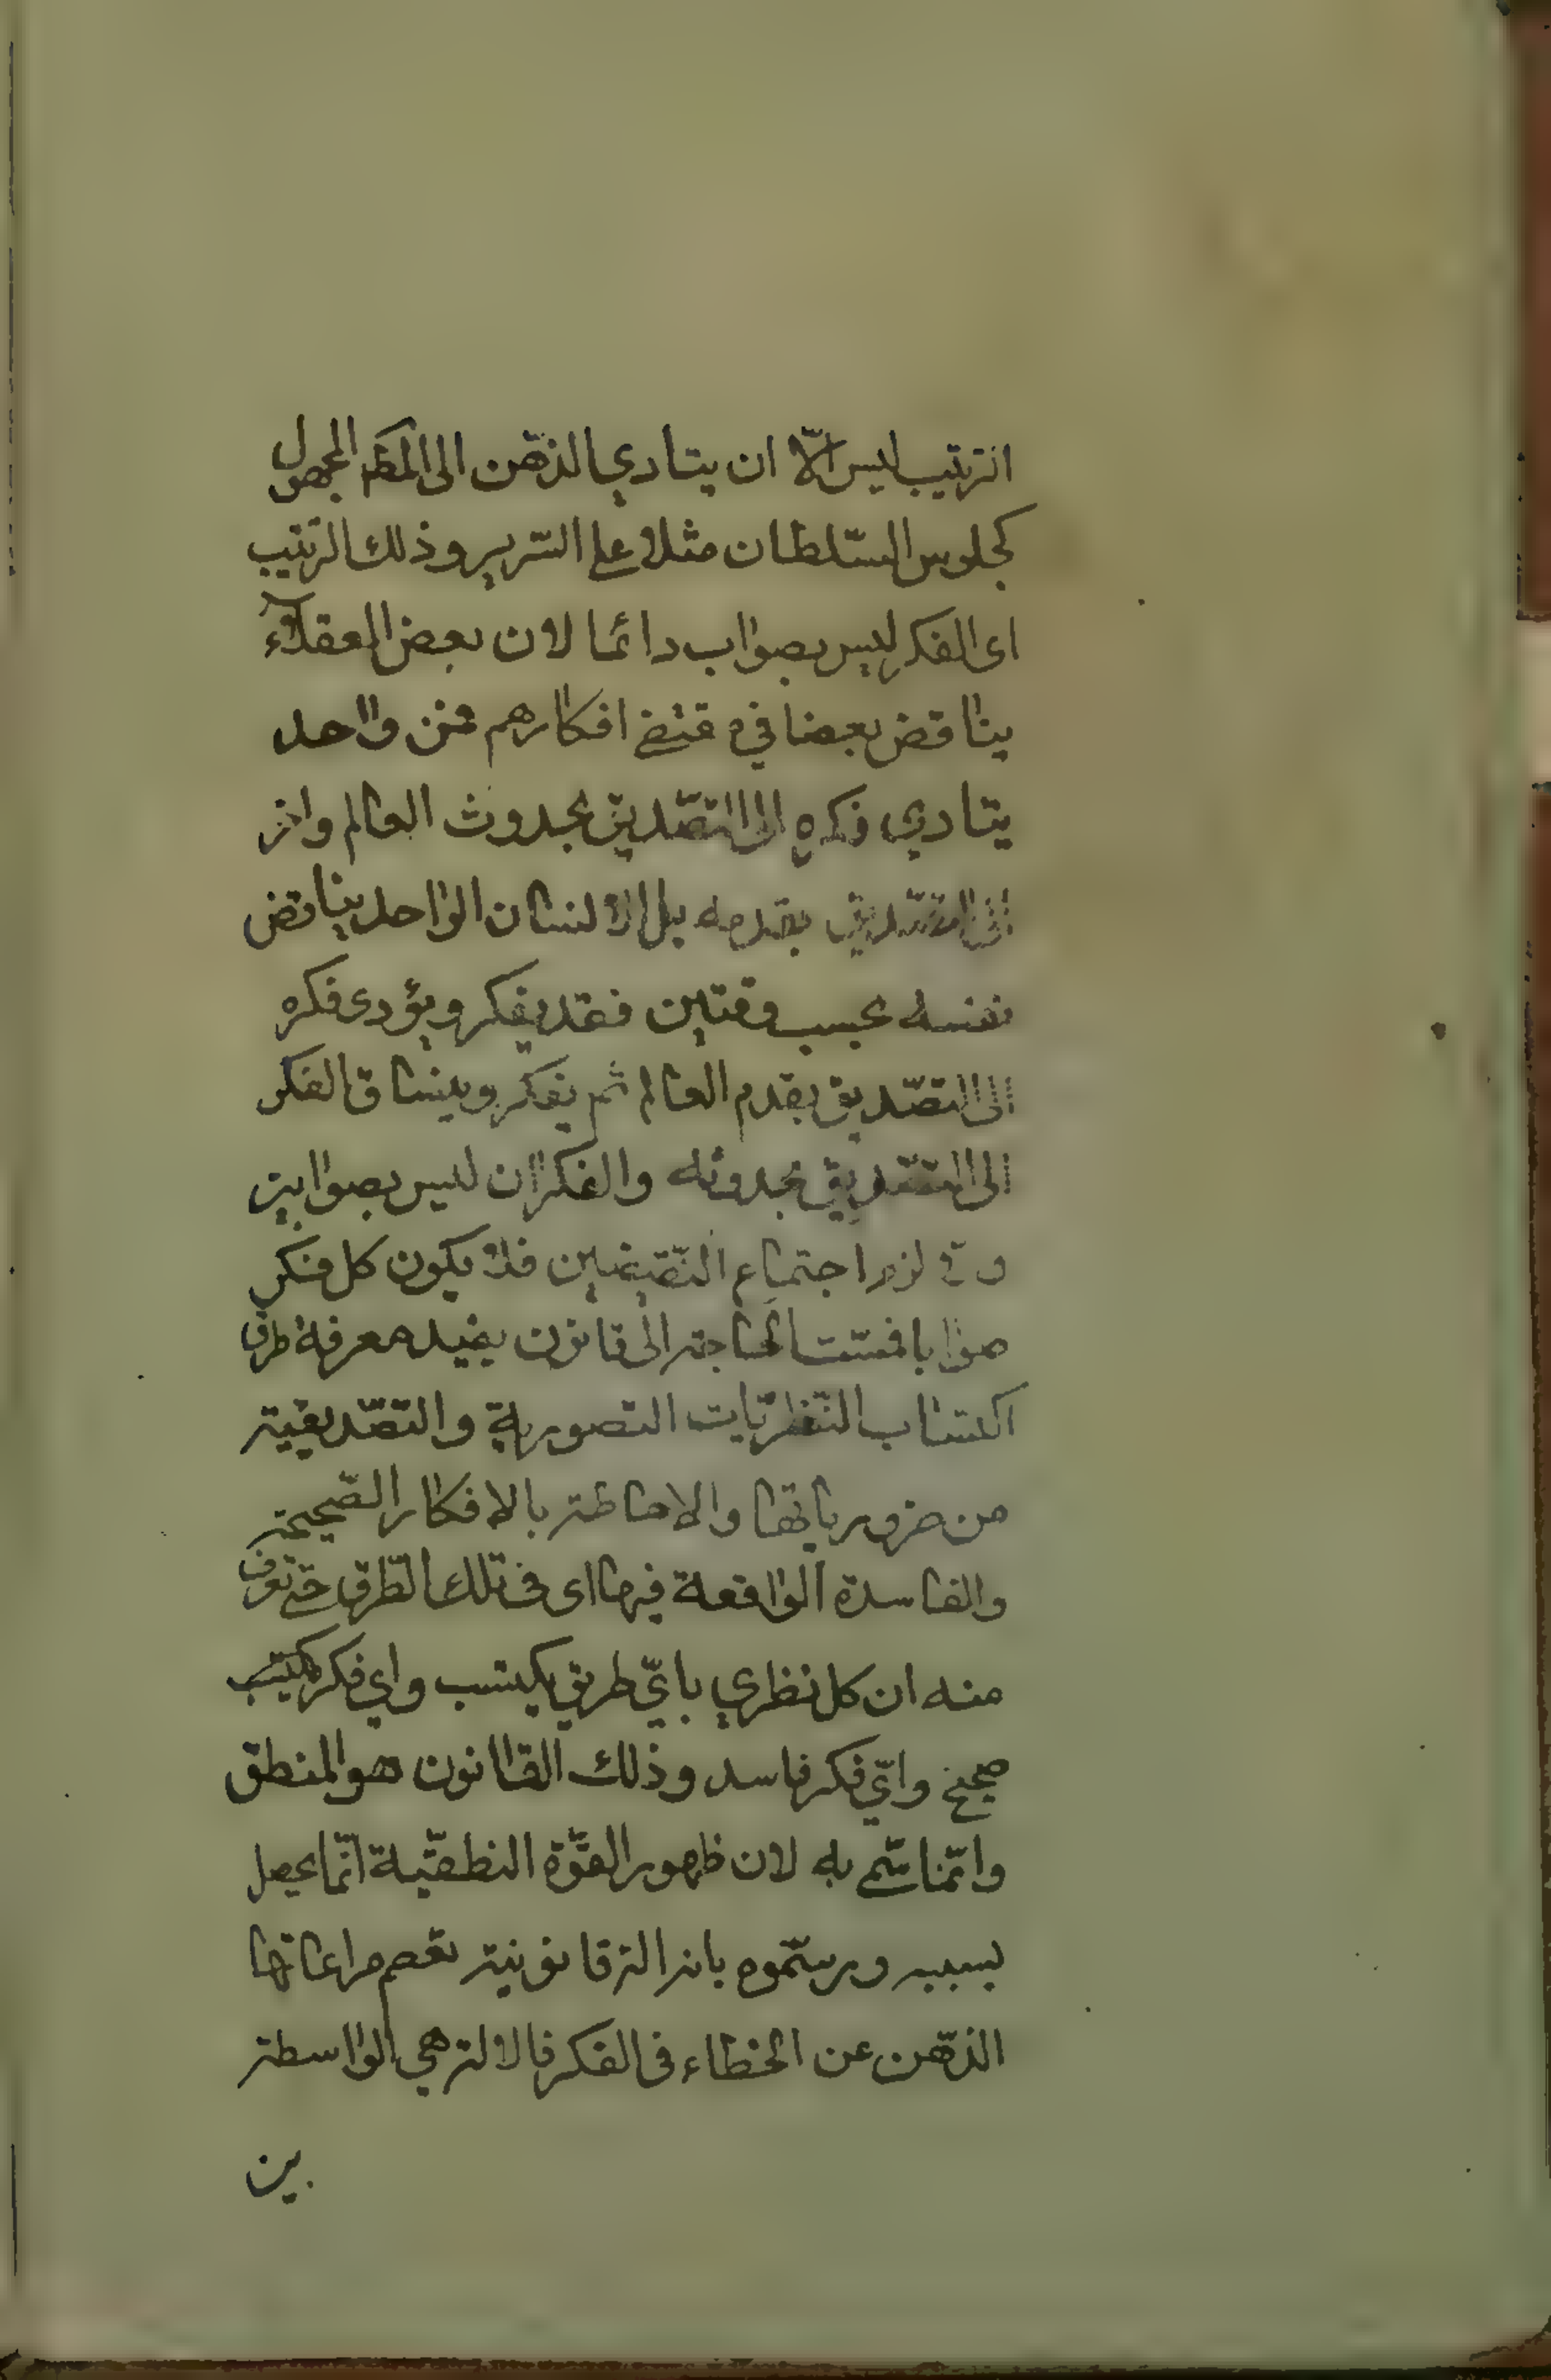 الترتيب ليس الّا ان يتادي الذّهن الى المط المجهول
كجلوس السّلطان مثلا على السّرير وذلك الترتيب
اى الفكر ليس بصواب دائما لان بعض العقلاء
يناقض بعضا في مقتضى افكارهم فمن واحد
يتادي فكره الى التصّديق بحدوث العالم واخر
الى التصّديق بقدمه بل الانسان الواحد يناقض
نفسه بحسب وقتين فقد يفكر ويؤدى فكره
الى التصّديق بقدم العالم ثم يفكر وينساق الفكر
الى التصّديق بحدوثه والفكران ليس بصوابين
والا لزم اجتماع النّقيضين فلا يكون كل فكر
صوابا فمسّت الحاجة الى قانون يفيد معرفة طرق
اكتساب النّظريّات التصورية والتصّديقية
من ضرورياتها والاحاطة بالافكار الصّحيحة
والفاسدة الواقعة فيها اى فى تلك الطّرق حتى تعرف
منه ان كل نظري بايّ طريق يكتسب واي فكر
صحيح وايّ فكر فاسد وذلك القانون هو المنطق
وانّما سّمى به لان ظهور القوّة النطقيّة انّما يحصل
بسببه ورسّموه بانه الة قانونية تعصم مراعاتها
الذّهن عن الخطاء فى الفكر فالالة هي الواسطة
بين